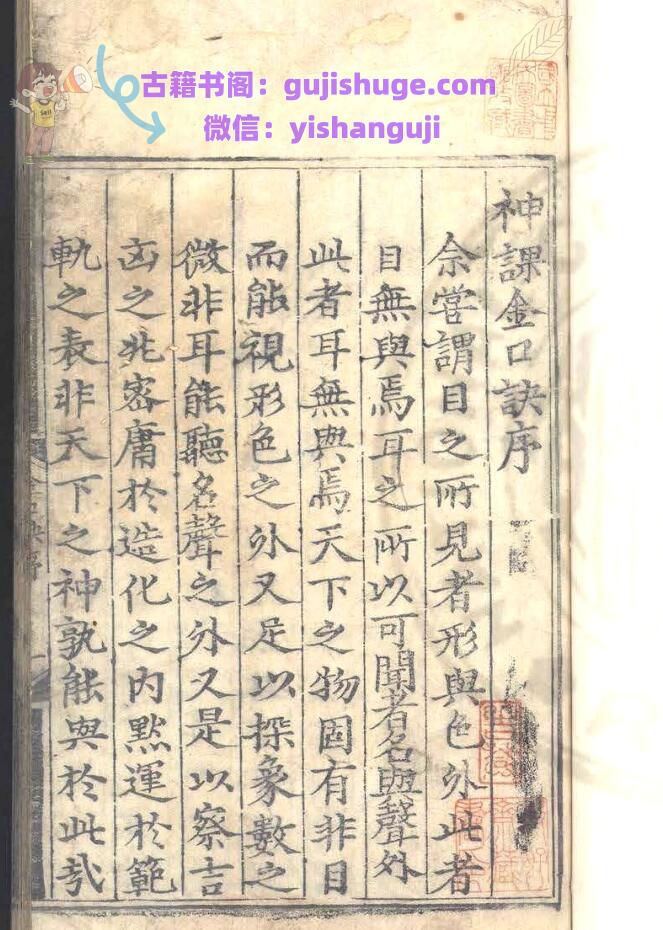 古籍书阁：gujishuge.com
微信：yishanguji
神課金口訣序
余嘗謂目之所見者形與色外此者
目無與焉耳之所以可聞者名與聲外
此者耳無與焉天下之物固有非目
而能視形色之外又足以探象數之
微非耳能聽名聲之外又是以察吉
凶之兆密庸於造化之內默運於範
軌之表非天下之神孰能與於此哉